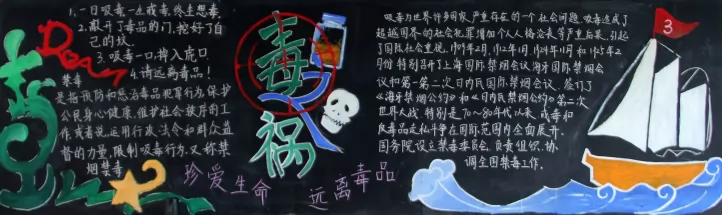 1、一日吸毒,一生戒毒,终生想毒。
2、敲开了毒品的门,挖好了自己的坟。
3、吸毒一口,掉入虎口
4、请远离毒品!
禁毒
是指预防和惩治毒品犯罪行为,保护
公民身心健康,维护社会秩序的工
作,或者说,运用行政、法令和群众监
督的力量,限制吸毒行为。又称禁
烟禁毒
毒祸
珍爱生命 远离毒品
吸毒为世界许多国家严重存在的一个社会问题。吸毒造成了
超越国界的社会犯罪增加个人人格沦丧等严重后果,引起
了国际社会重视。1909年2月、1912年1月、1924年11月和1925年2
月份特别召开了上海国际禁烟会议海牙国际禁烟会
议和第一第二次日内瓦国际禁烟会议。签订了
《海牙禁烟公约》和《日内瓦禁烟公约》第二次
世界大战,特别是70～80年代以来,戒毒和
反毒品走私斗争在国际范围内全面展开。
国务院设立禁毒委员会,负责组织、协、
调全国禁毒工作。
3